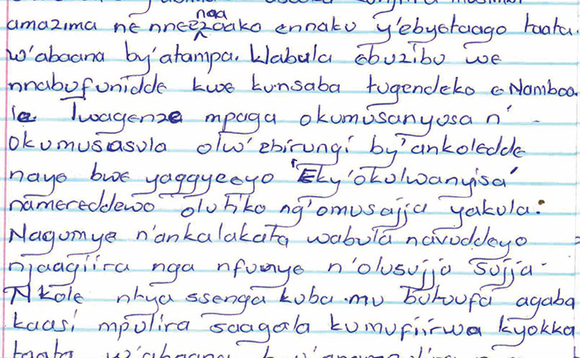 amazima ne nneezaako nga ennaku y'ebyetaago taata.
w'abaana by'atampa. Wabula ebuzibu we
nnabufunidde kwe kunsaba tugendeko e Namboo.
le Twagenze mpaga okumusanyusa n'-
okumusasula olw'ebirungi by'ankoledde
naye bwe yaggyeeyo 'Eky'okulwanyisa'
namereddewo olutiko ng'omusajja yakula.
Nagumye n'ankalakata wabula navuddeyo
njaagiira nga nfuuye n'olusujja sujja-
Nkole ntya ssenga kuba mu butuufu agaba
kaasi mpulira saagala kumufiirwa kyokka